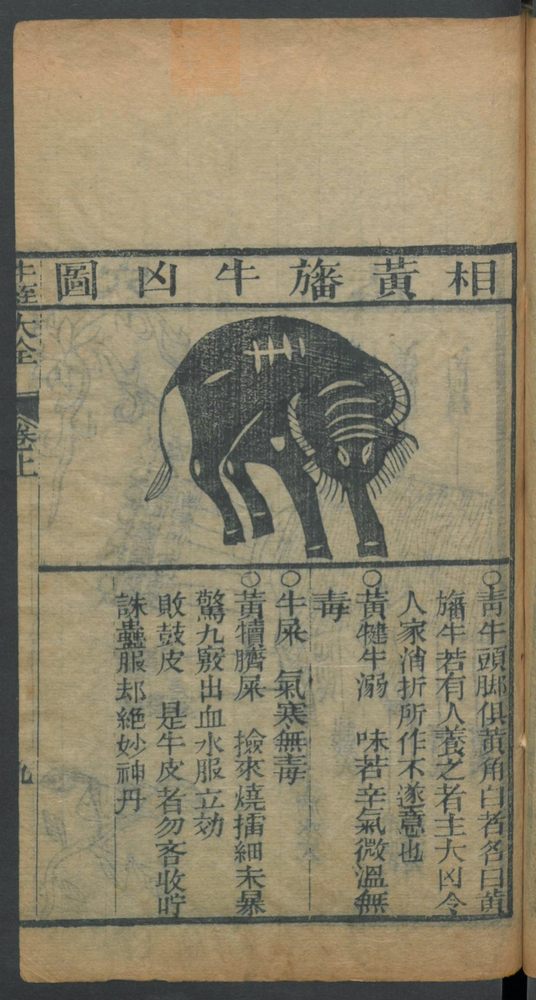 相黃旛牛凶圖
○靑牛頭脚俱黃角白者名曰黃
旛牛若有人養之者主大凶令
人家消折所作不遂意也
○黃犍牛溺　味苦辛氣微溫無
毒
○牛屎　氣寒無毒
○黃犢臍屎　撿來燒擂細末暴
驚九竅出血水服立効
敗鼓皮　是牛皮者勿吝收貯
誅蠱服却絶妙神丹
牛經大全　卷上　九